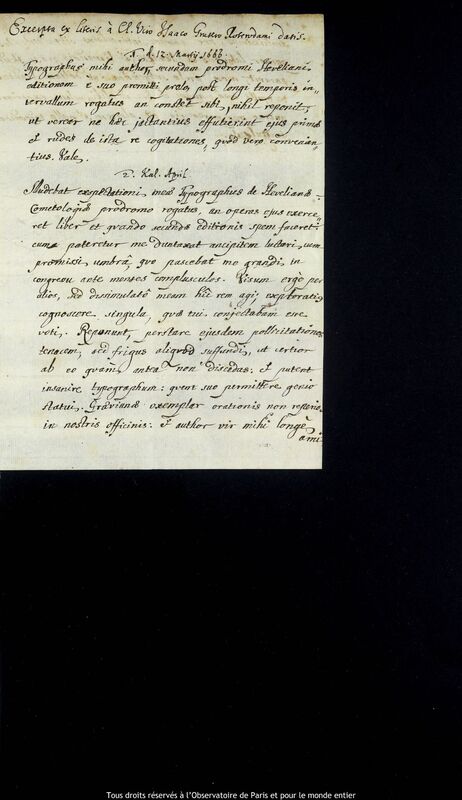 Excerpta ex literis à Cl. Viro Isaaco Grutero Roterdami datis.
1. d. 12. Martij 1666.
Typographus mihi author, secundam prodromi Heveliani
editionem è suo promitti prelo, post longi temporis in-
tervallum rogatus an constet sibi, nihil reponit,
ut verear ne hæc jactantius effutierint ejus primæ
et rudes de ista re cogitationes, quod vero convenan-
tius. Vale.
2. Kal. April
Illudebat expectationi meæ Typographus de Heveliana
Cometologiæ prodromo rogatus, an operas ejus exerce-
ret liber et quando secundæ editionis spem faceret:
cum pateretur me duntaxat ancipitem luctari, cum
promissi umbrâ, quo pascebat me grandi, in
congressu ante menses complusculos. Visum ergo per
alios, sed dissimulatô meam hîc rem agi, exploratius
cognoscere singula, quæ tui conjectabam esse
voti. Reponunt, perstare ejusdem pollicitationis
tenacem, sed frigus aliquod suffundi, ut certior
ab eo quam antea non discedas: et putem
insanire typographum: quem suo permittere genio
statui. Grævianæ exemplar orationis non reperio
in nostris officinis: et author vir mihi longè
ami
Tous droits réservés à l'Observatoire de Paris et pour le monde entier